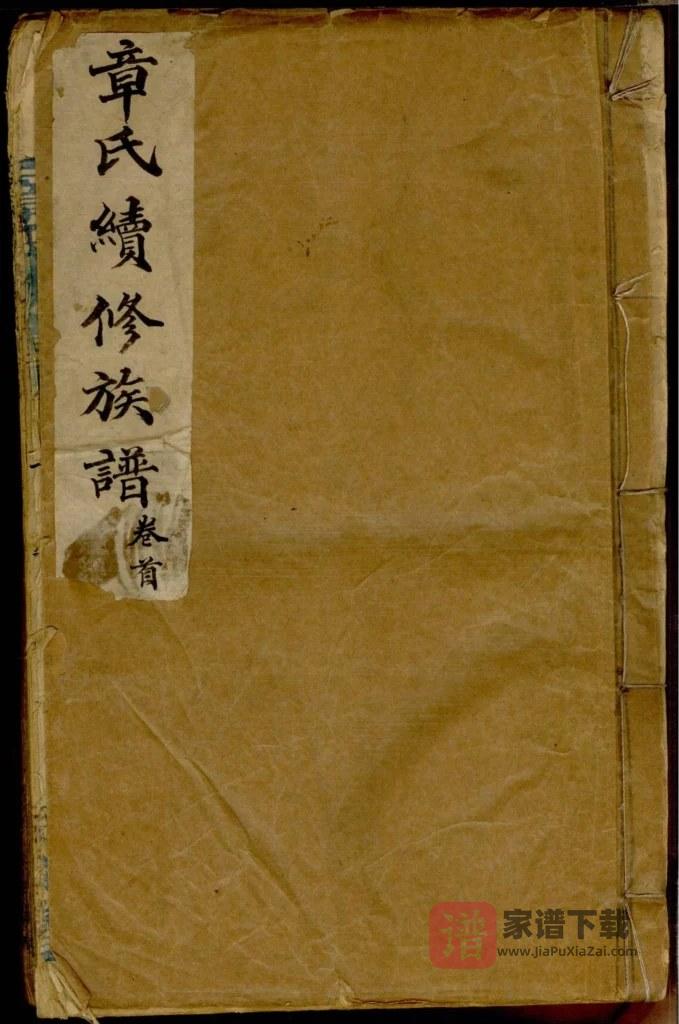 章氏續修族譜
卷首
谱
家谱下载
www.JiaPuXiaZai.com